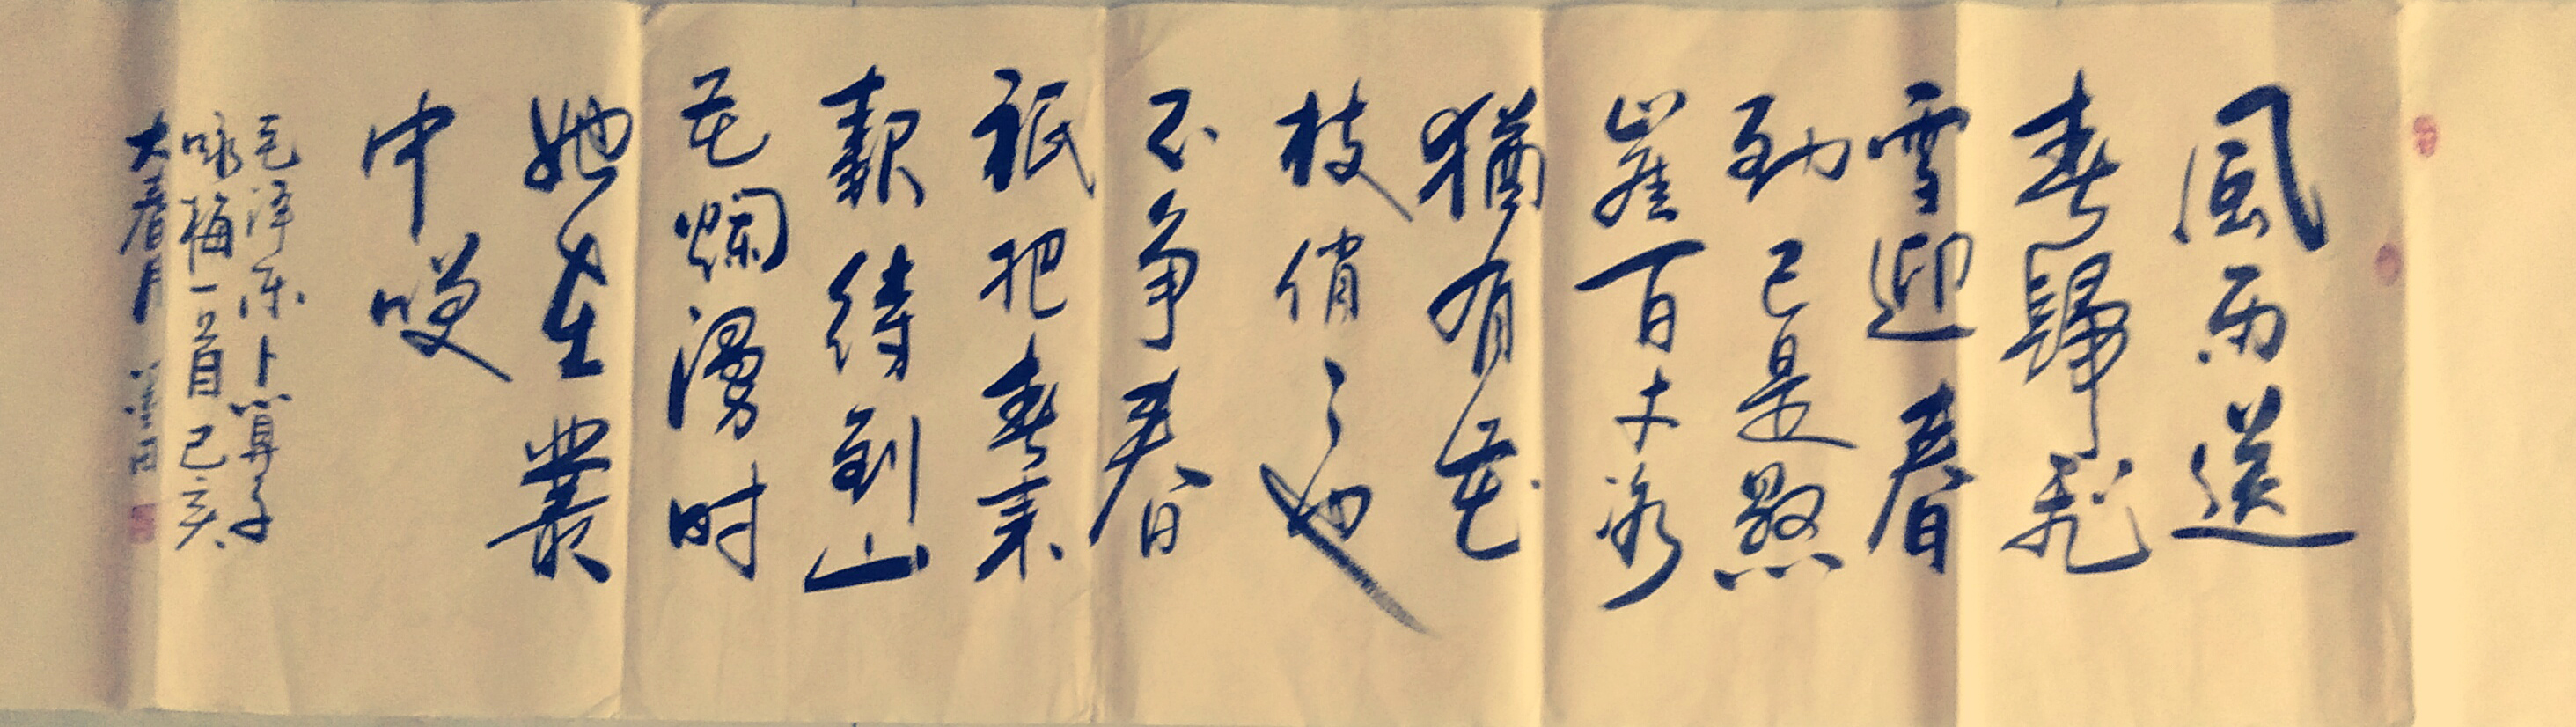 風雨送
春歸飛
雪迎春
到已是懸
崖百丈冰
猶有花
枝俏〻也
不争春
祇把春来
報待到山
花爛漫时
她在叢
中咲
毛泽东卜算子
咏梅一首己亥
大春月